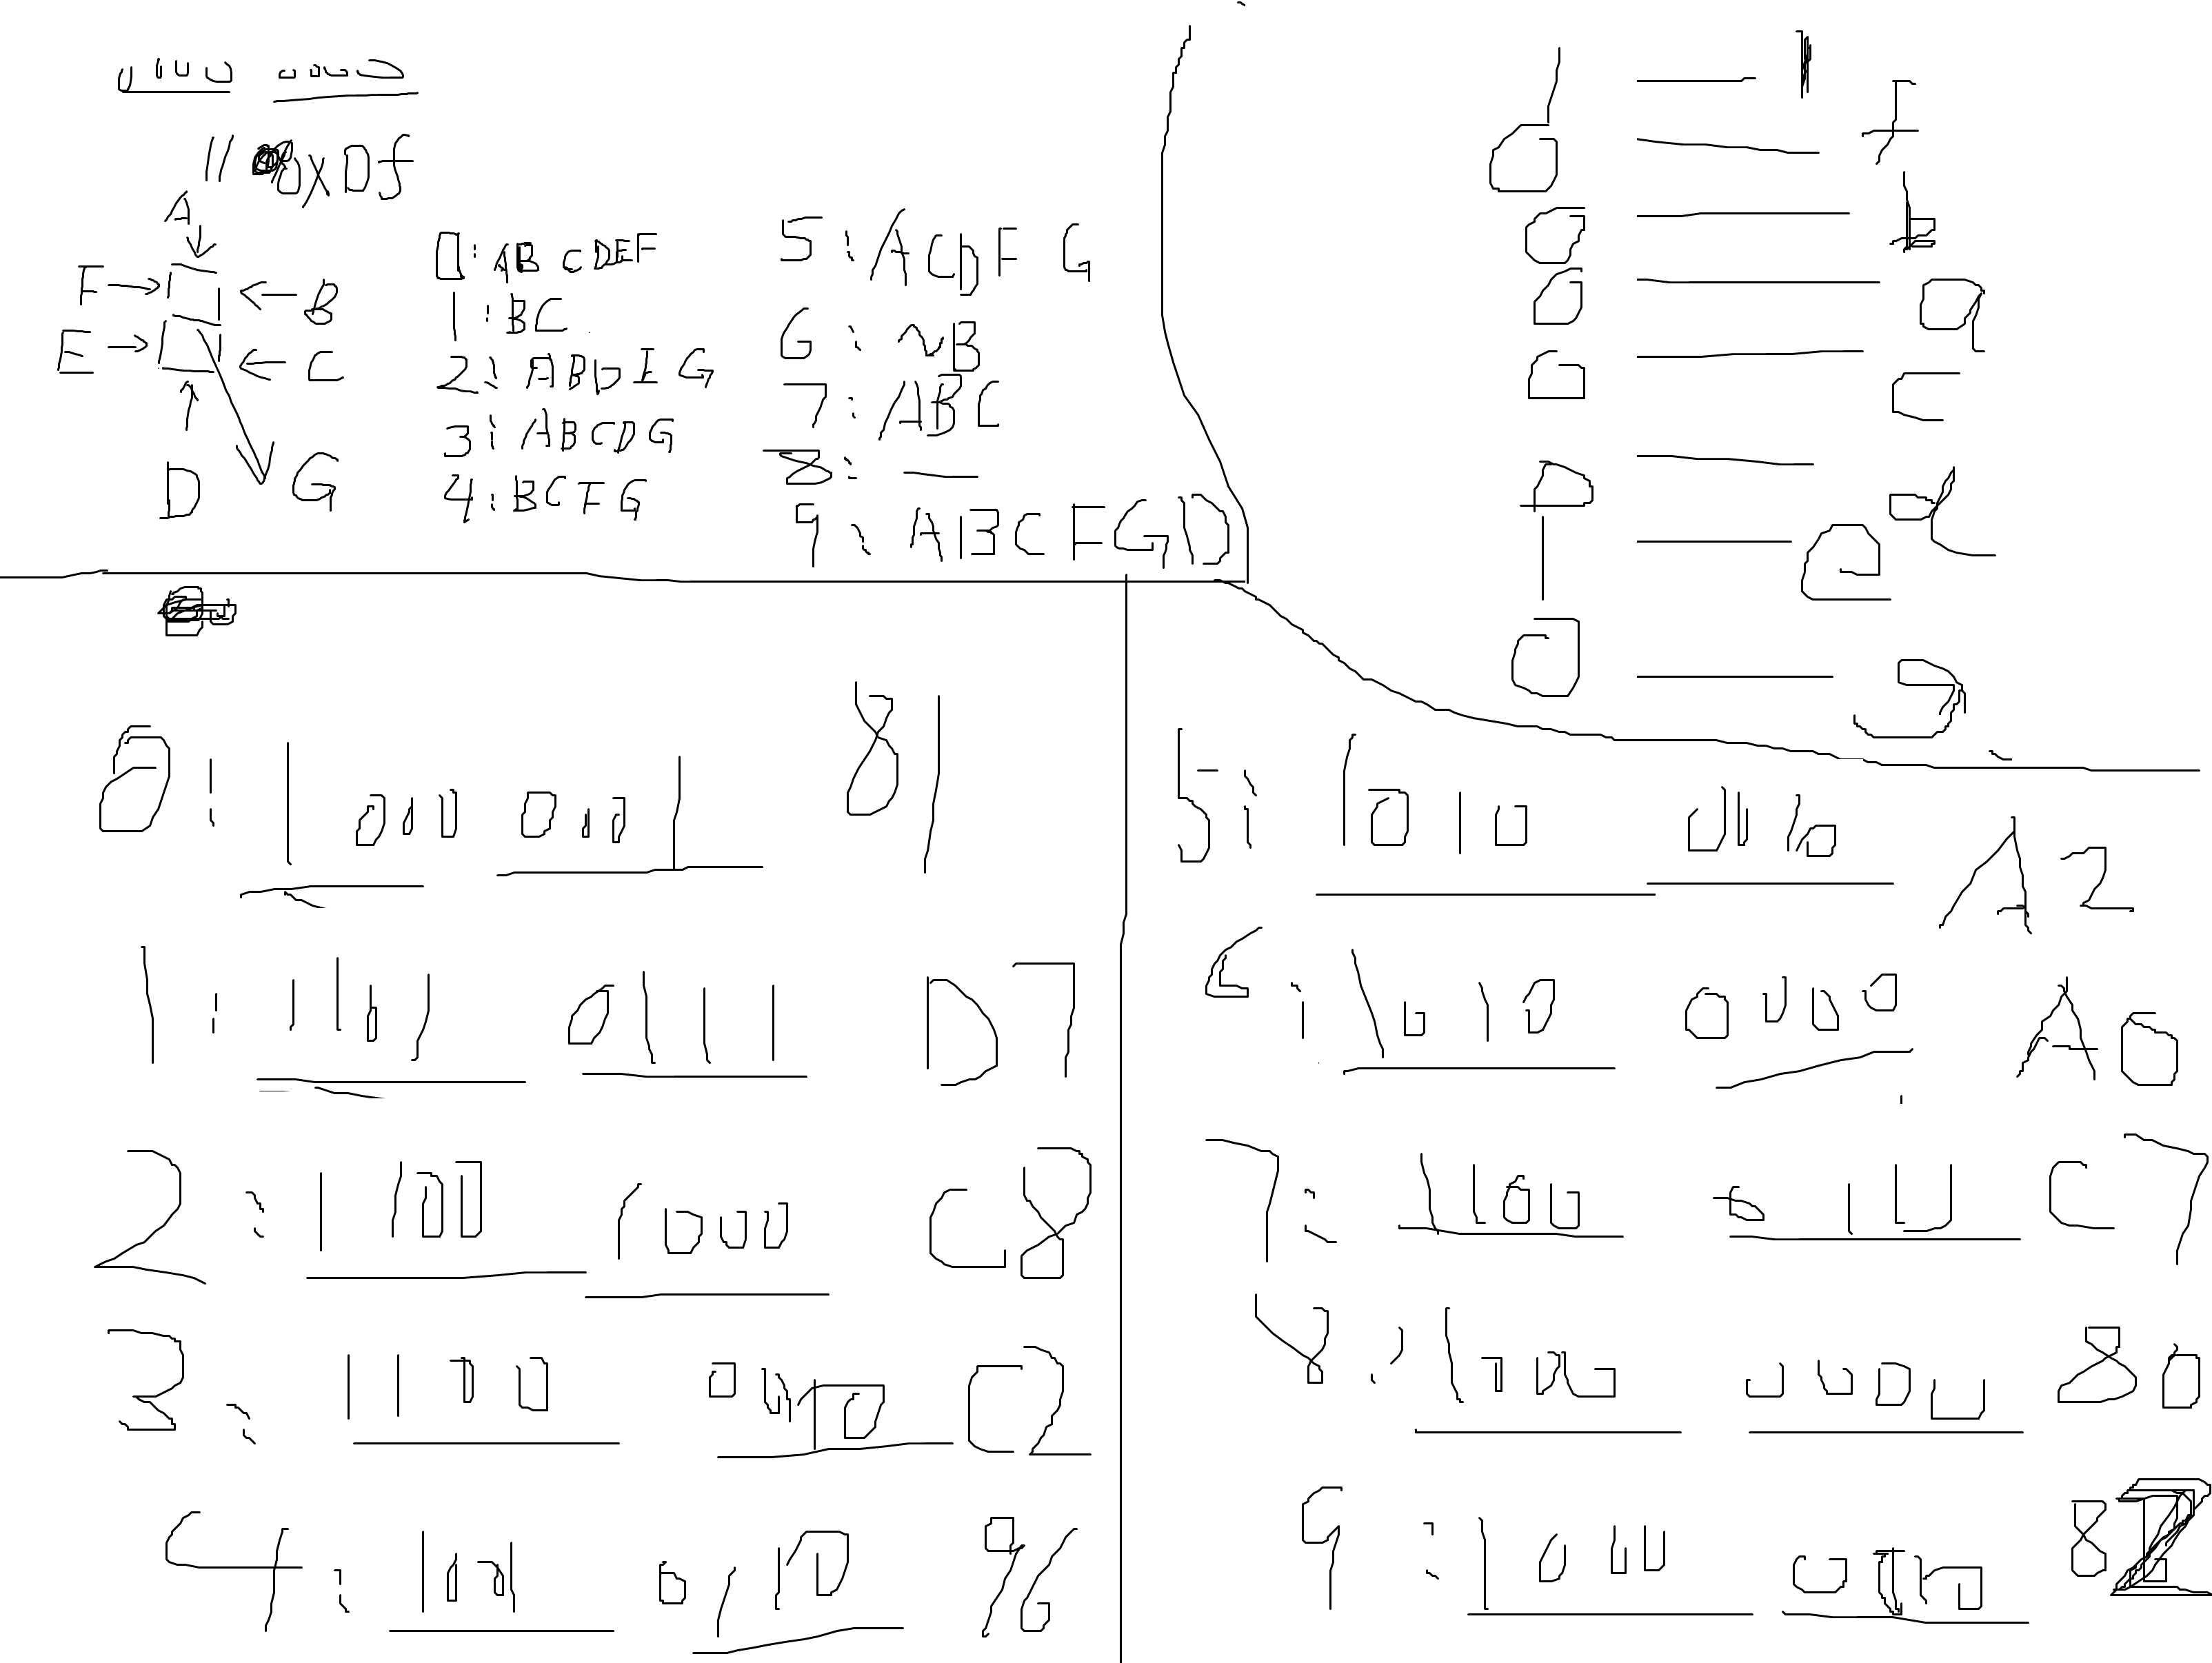 0000 0000
11 0XDf
A
F B
E C
D G
0: ABCDEF
1: BC
2: ABDEG
3: ABCDG
4: BCFG
5: ACDFG
6: ~B
7: ABC
8: —
9: ABCFGD
1 f
0 b
0 g
0 c
0 d
1 e
0
0: 1000 0001 81
1: 1101 0111 D7
2: 1100 1000 C8
3: 1100 0010 C2
4: 1001 0110 96
5: 1010 0010 A2
6: 1010 0000 A6
7: 1100 0111 C7
8: 1000 0000 80
9: 1000 0010 82